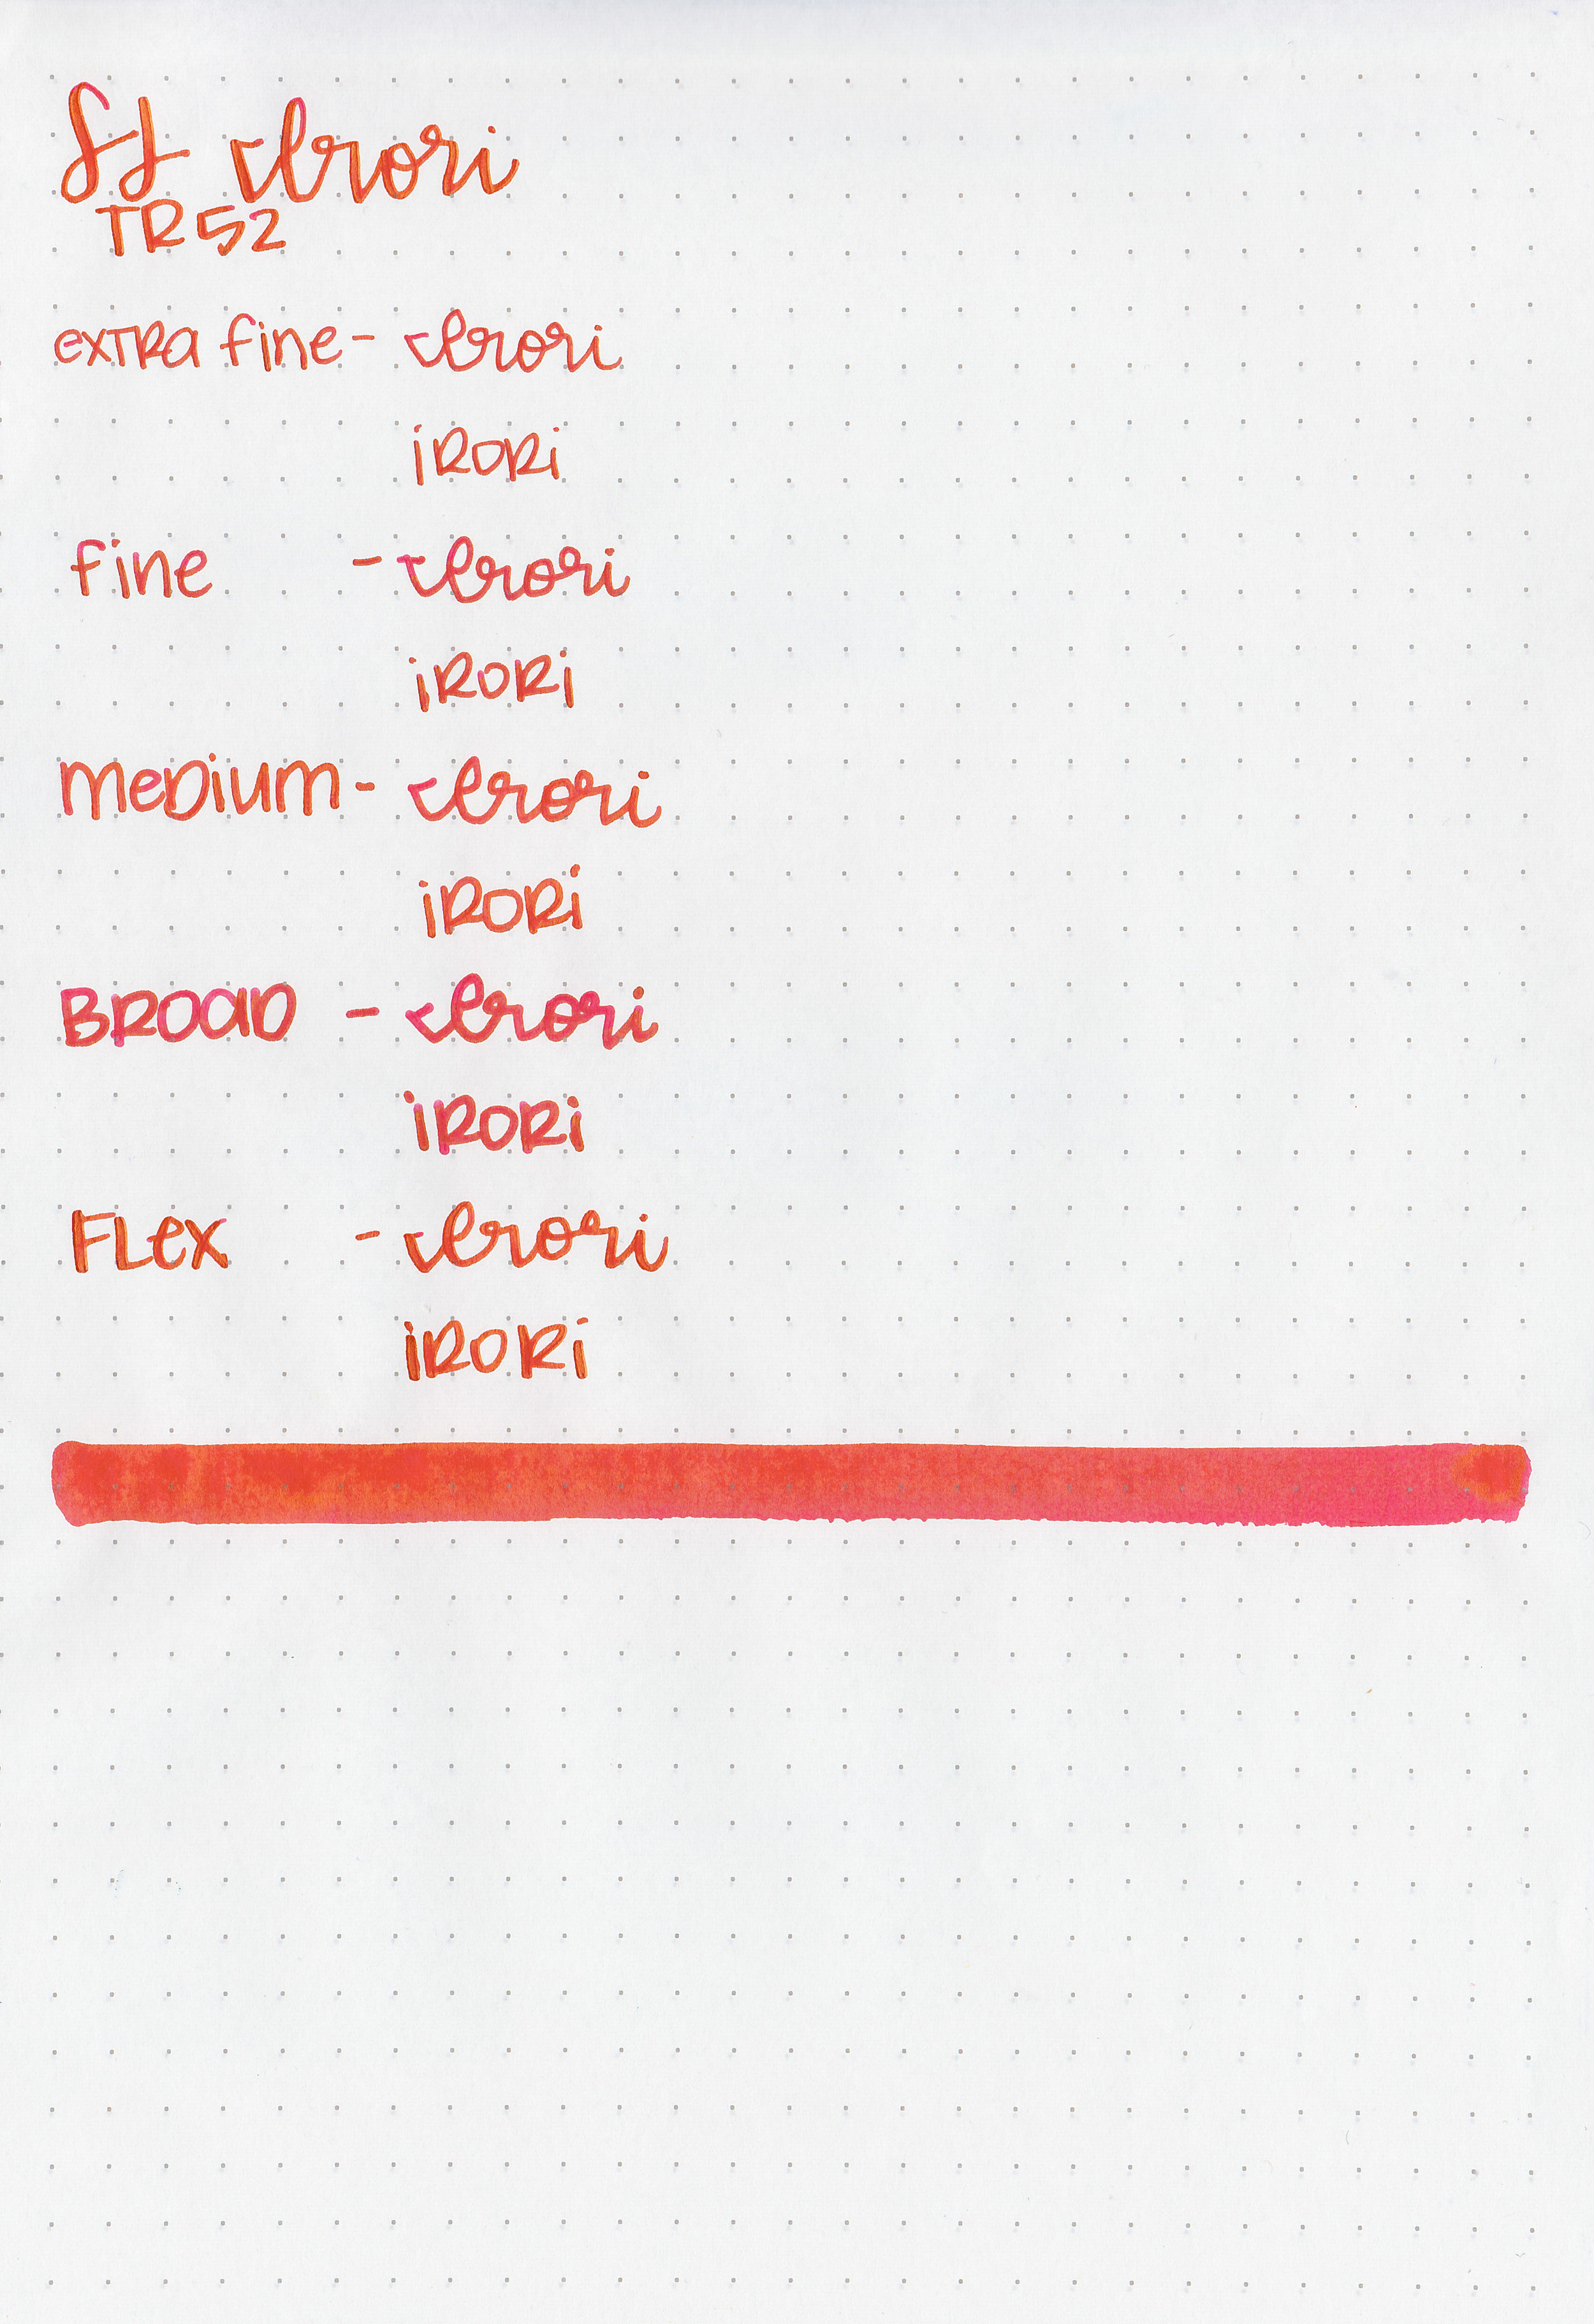 SJ Irori
TR52
extra fine - Irori
irori
fine - Irori
irori
medium - Irori
irori
Broad - Irori
irori
Flex - Irori
irori